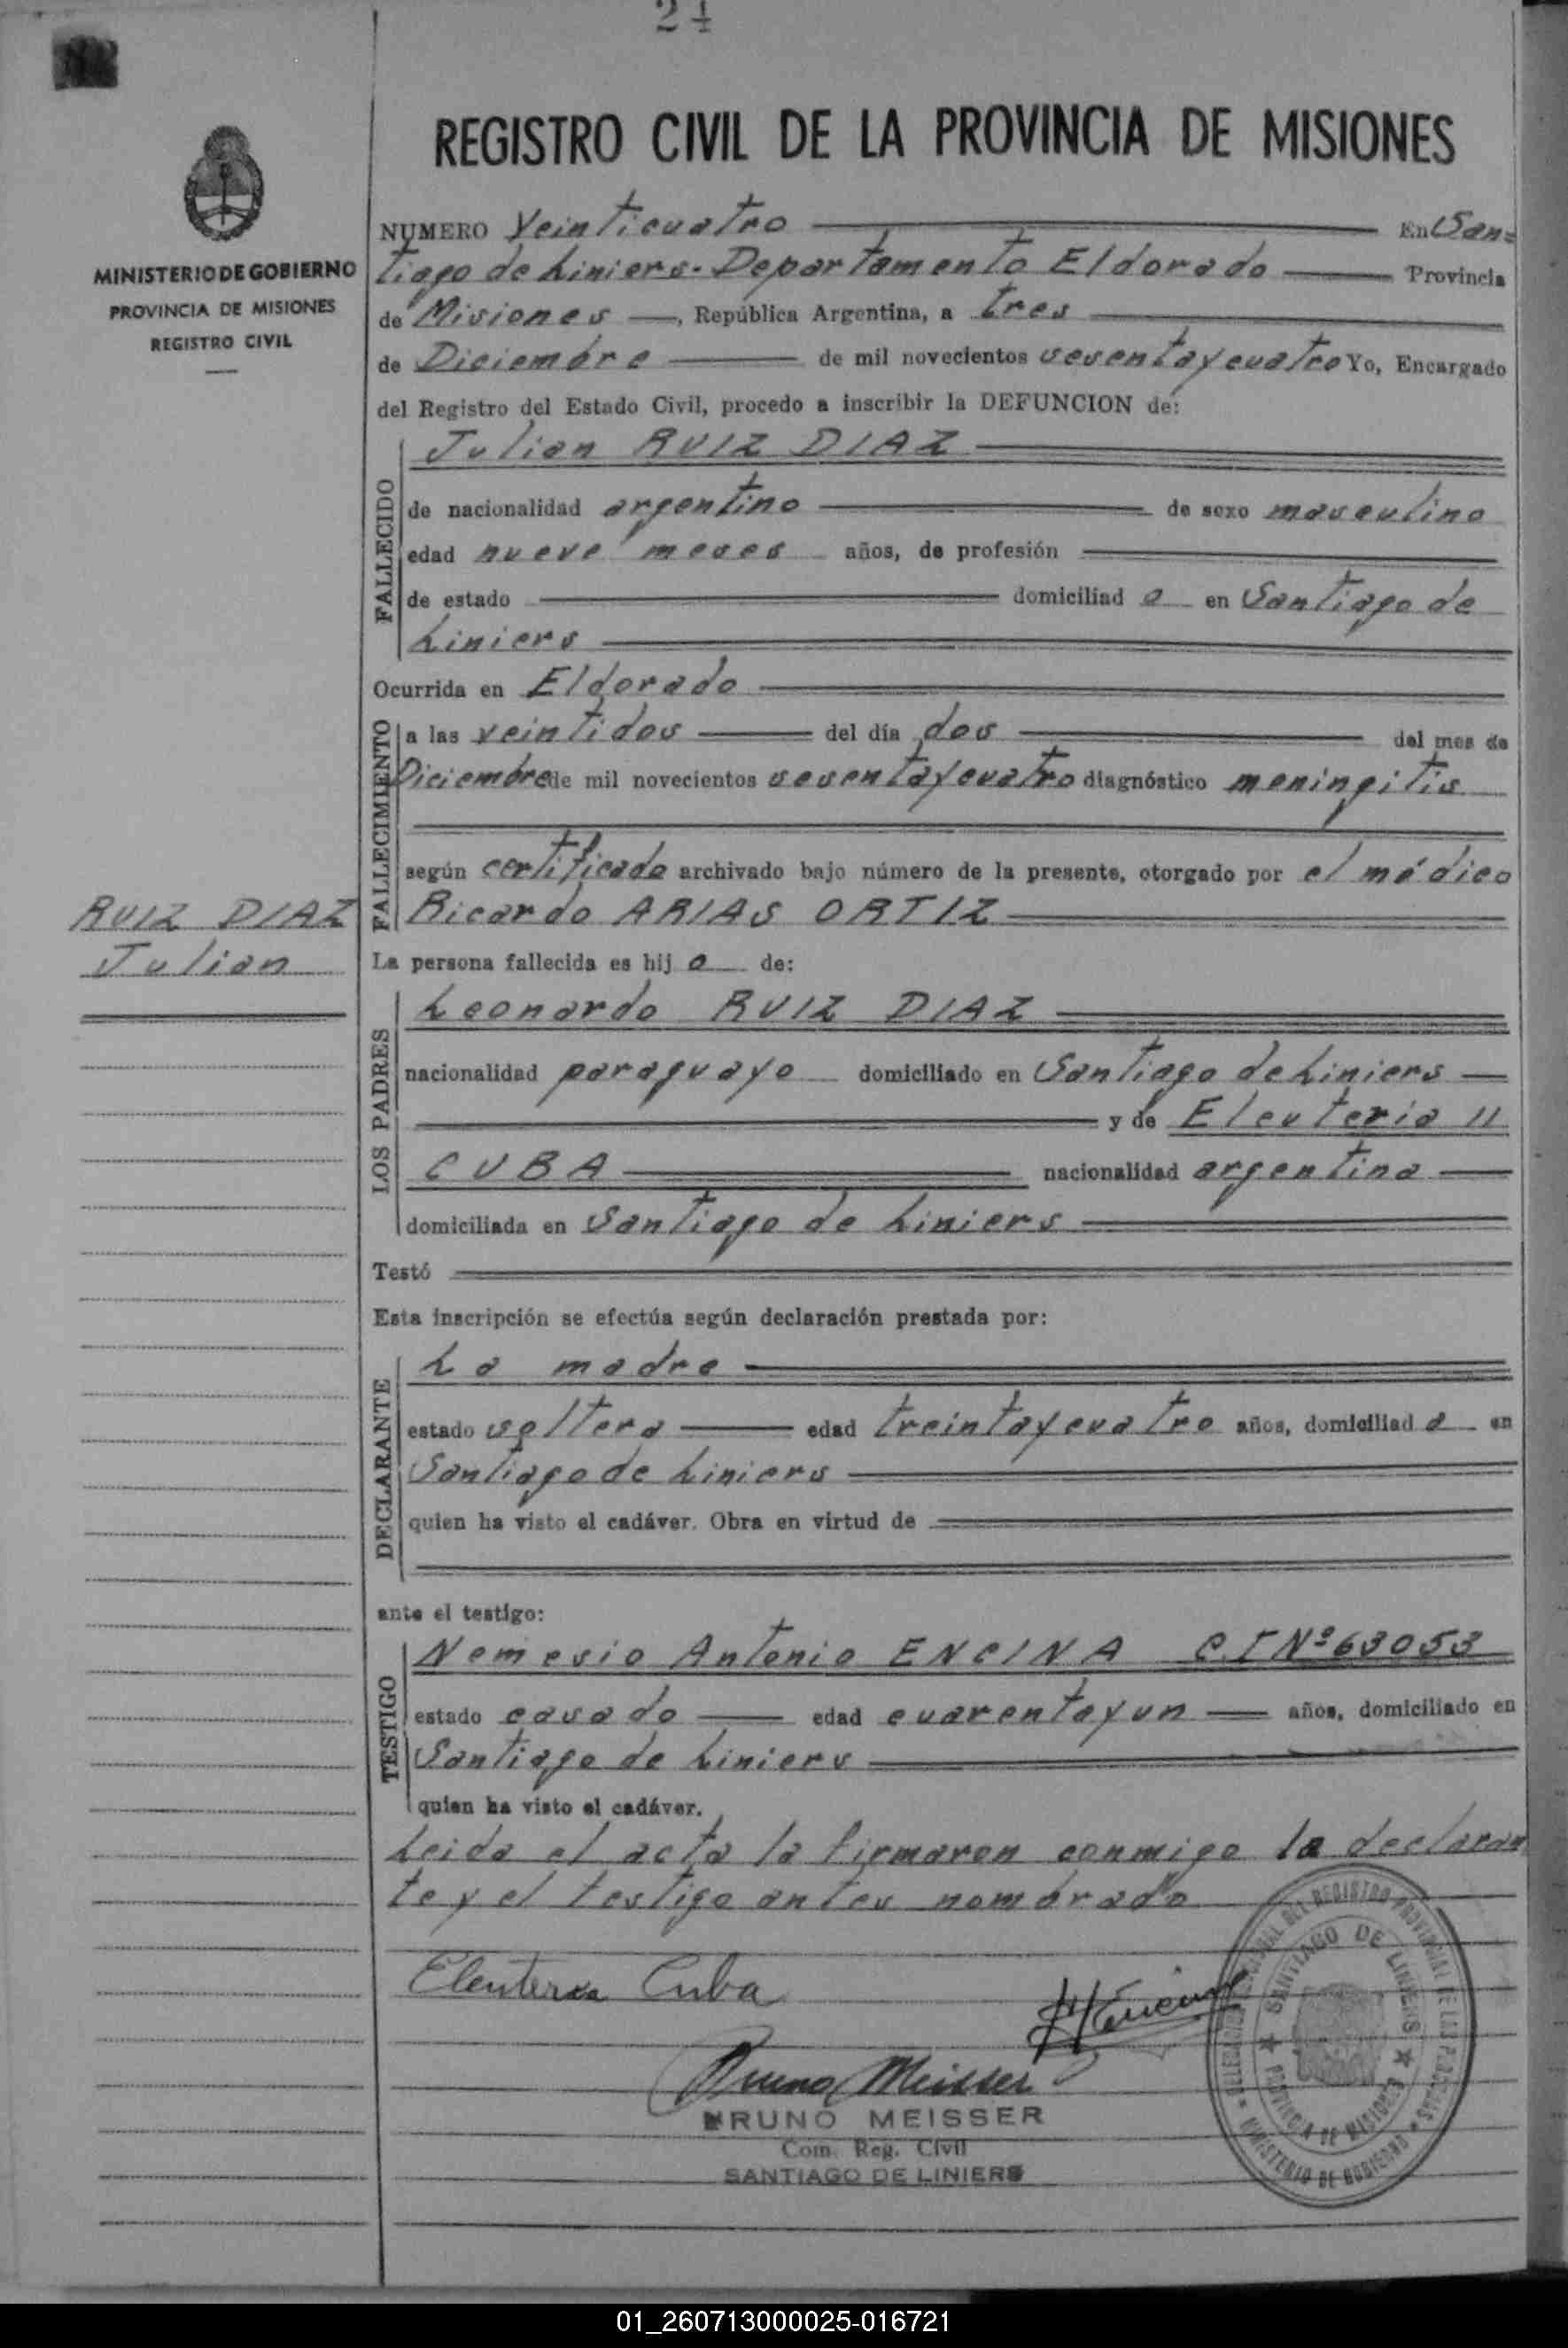 24
REGISTRO CIVIL DE LA PROVINCIA DE MISIONES
MINISTERIO DE GOBIERNO
PROVINCIA DE MISIONES
REGISTRO CIVIL
NUMERO Veinticuatro En San=
tiago de Liniers. Departamento Eldorado Provincia
de Misiones, República Argentina, a tres
de Diciembre de mil novecientos sesentaycuatro Yo, Encargado
del Registro del Estado Civil, procedo a inscribir la DEFUNCION de:
FALLECIDO
Julian RUIZ DIAZ
de nacionalidad argentino de sexo masculino
edad nueve meses años, de profesión
de estado domiciliad o en Santiago de
Liniers
Ocurrida en Eldorado
FALLECIMIENTO
a las veintidos del día dos del mes de
Diciembre de mil novecientos sesentaycuatro diagnóstico meningitis
según certificado archivado bajo número de la presente, otorgado por el médico
Ricardo ARIAS ORTIZ
RUIZ DIAZ
Julian
La persona fallecida es hij o de:
LOS PADRES
Leonardo RUIZ DIAZ
nacionalidad paraguayo domiciliado en Santiago de Liniers
y de Eleuteria
CUBA nacionalidad argentina
domiciliada en Santiago de Liniers
Testó
Esta inscripción se efectúa según declaración prestada por:
DECLARANTE
La madre
estado soltera edad treintaycuatro años, domiciliad a en
Santiago de Liniers
quien ha visto el cadáver. Obra en virtud de
ante el testigo:
TESTIGO
Nemesio Antonio ENCINA C.I Nº 63053
estado casado edad cuarentayun años, domiciliado en
Santiago de Liniers
quien ha visto el cadáver.
Leida el acta la firmaron conmigo la declaran
te y el testigo antes nombrado
Eleuteria Cuba
Encina
Bruno Meisser
BRUNO MEISSER
Com. Reg. Civil
SANTIAGO DE LINIERS
DEL REGISTRO PROVINCIAL DE LAS PERSONAS
MINISTERIO DE GOBIERNO
SANTIAGO DE LINIERS
PROVINCIA DE MISIONES
01_260713000025-016721